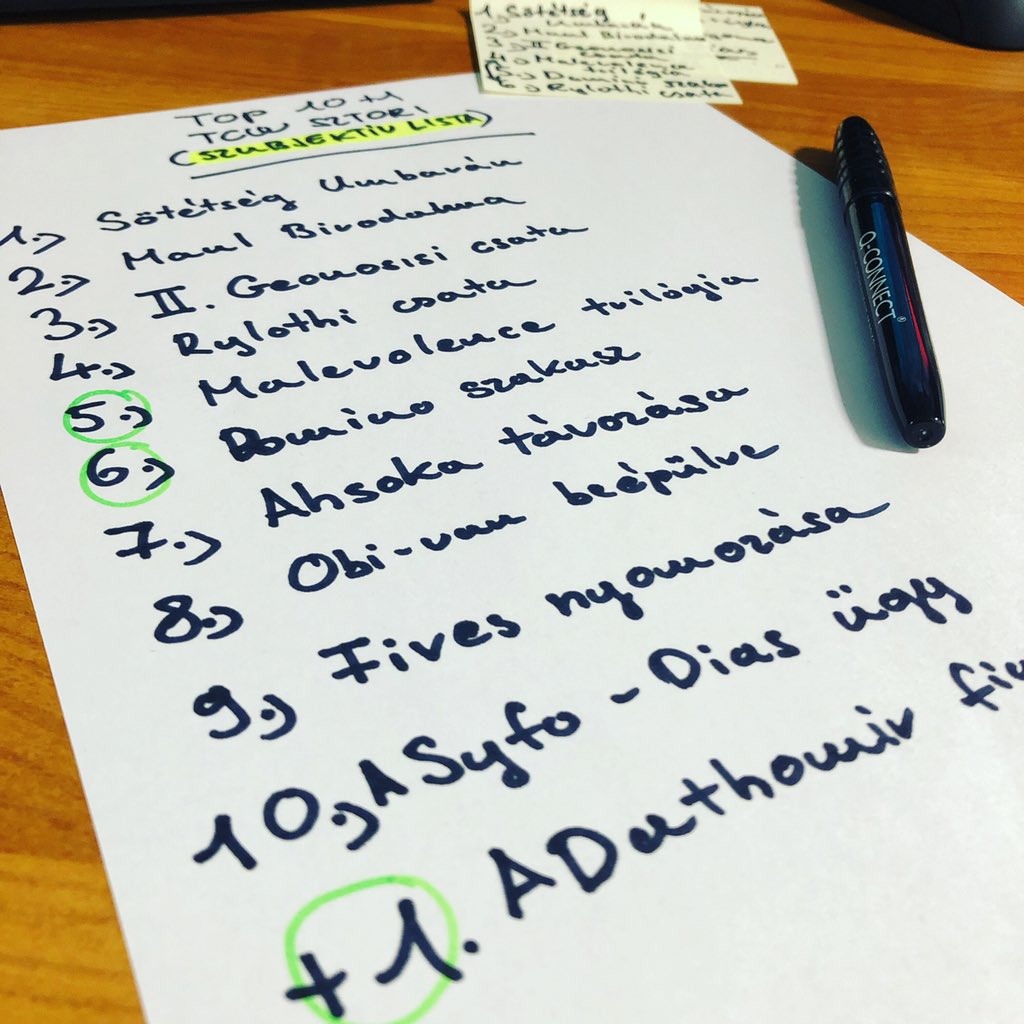 TOP 10+1
TCW SZTORI
(SZUBJEKTÍV LISTA)
1.) Sötétség Umbarán
2.) Maul Birodalma
3.) II. Geonosisi csata
4.) Rylothi csata
5.) Malevolence trilógia
6.) Domino szakasz
7.) Ahsoka távozása
8.) Obi-van beépülve
9.) Fives nyomozása
10.) A Syfo-Dias ügy
+1. A Dathomir
Q-CONNECT®
1. Sötétség
Umbarán
2. Maul Birodalma
3. II Geonosisi
csata
4. Malevolence
trilógia
5.
6. Rylothi csata